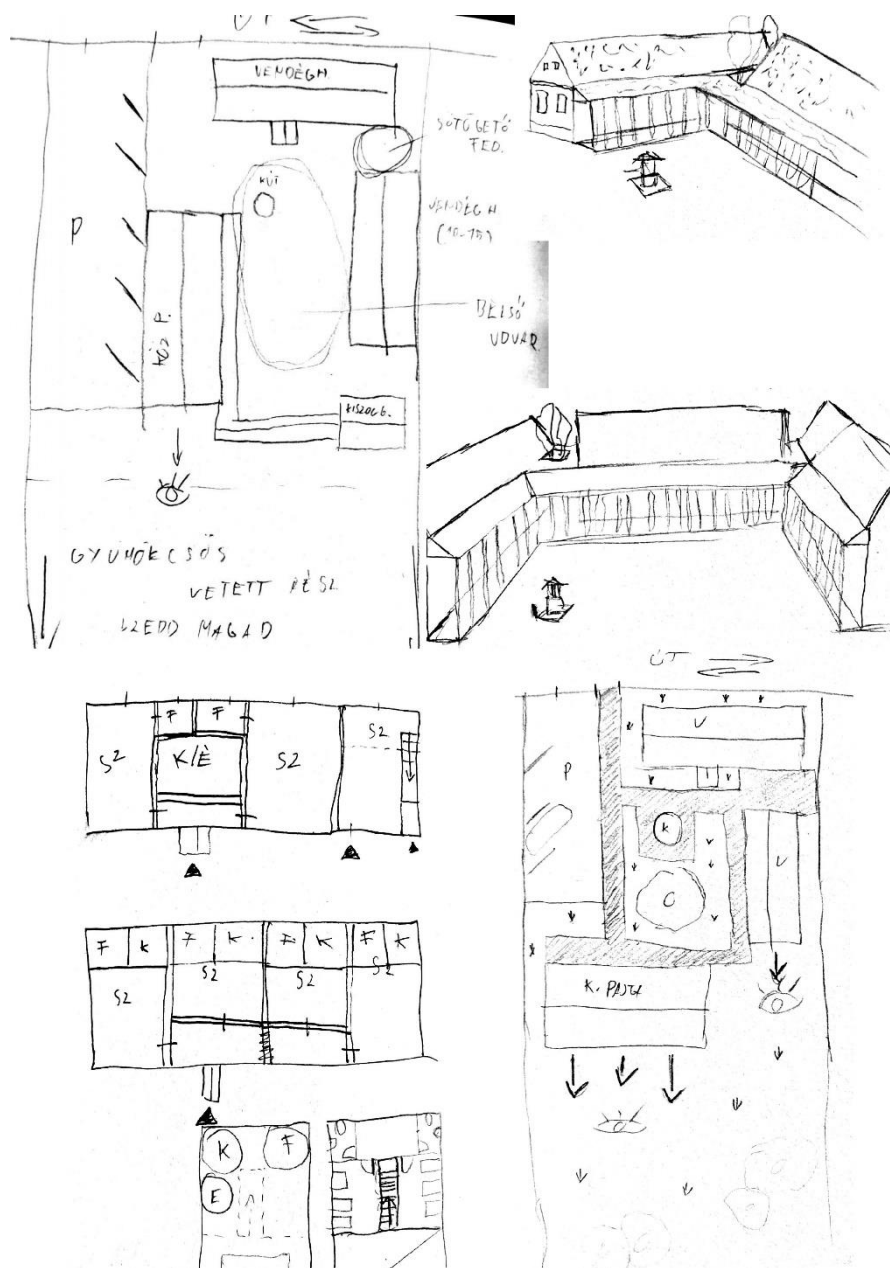 ÚT
VENDÉGH.
SÜTÖGETŐ
FED.
KÚT
P
VENDÉGH
(10-15)
KÖZ P.
BELSŐ
UDVAR
KISZOLG.
GYÜMÖLCSÖS
VETETT RÉSZ
SZEDD MAGAD
F F
SZ K/É SZ SZ
F K F K F K F K
SZ SZ SZ SZ
K F
E
ÚT
V
P
K
V
K. PAJTA